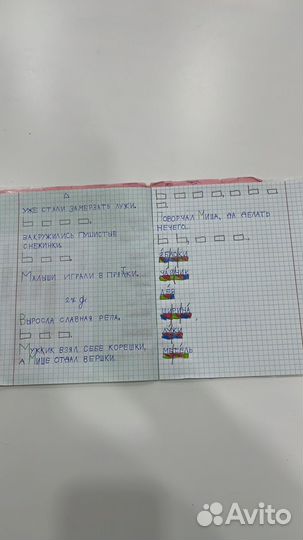 УЖЕ СТАЛИ ЗАМЕРЗАТЬ ЛУЖИ.
ЗАКРУЖИЛИСЬ ПУШИСТЫЕ
СНЕЖИНКИ.
МАЛЫШИ ИГРАЛИ В ПРЯТКИ.
ВЫРОСЛА СЛАВНАЯ РЕПА.
МУЖИК ВЗЯЛ СЕБЕ КОРЕШКИ,
А МИШЕ ОТДАЛ ВЕРШКИ.
ПОВОРЧАЛ МИША, ДА ДЕЛАТЬ
НЕЧЕГО.
ЧАЙНИК
Avito